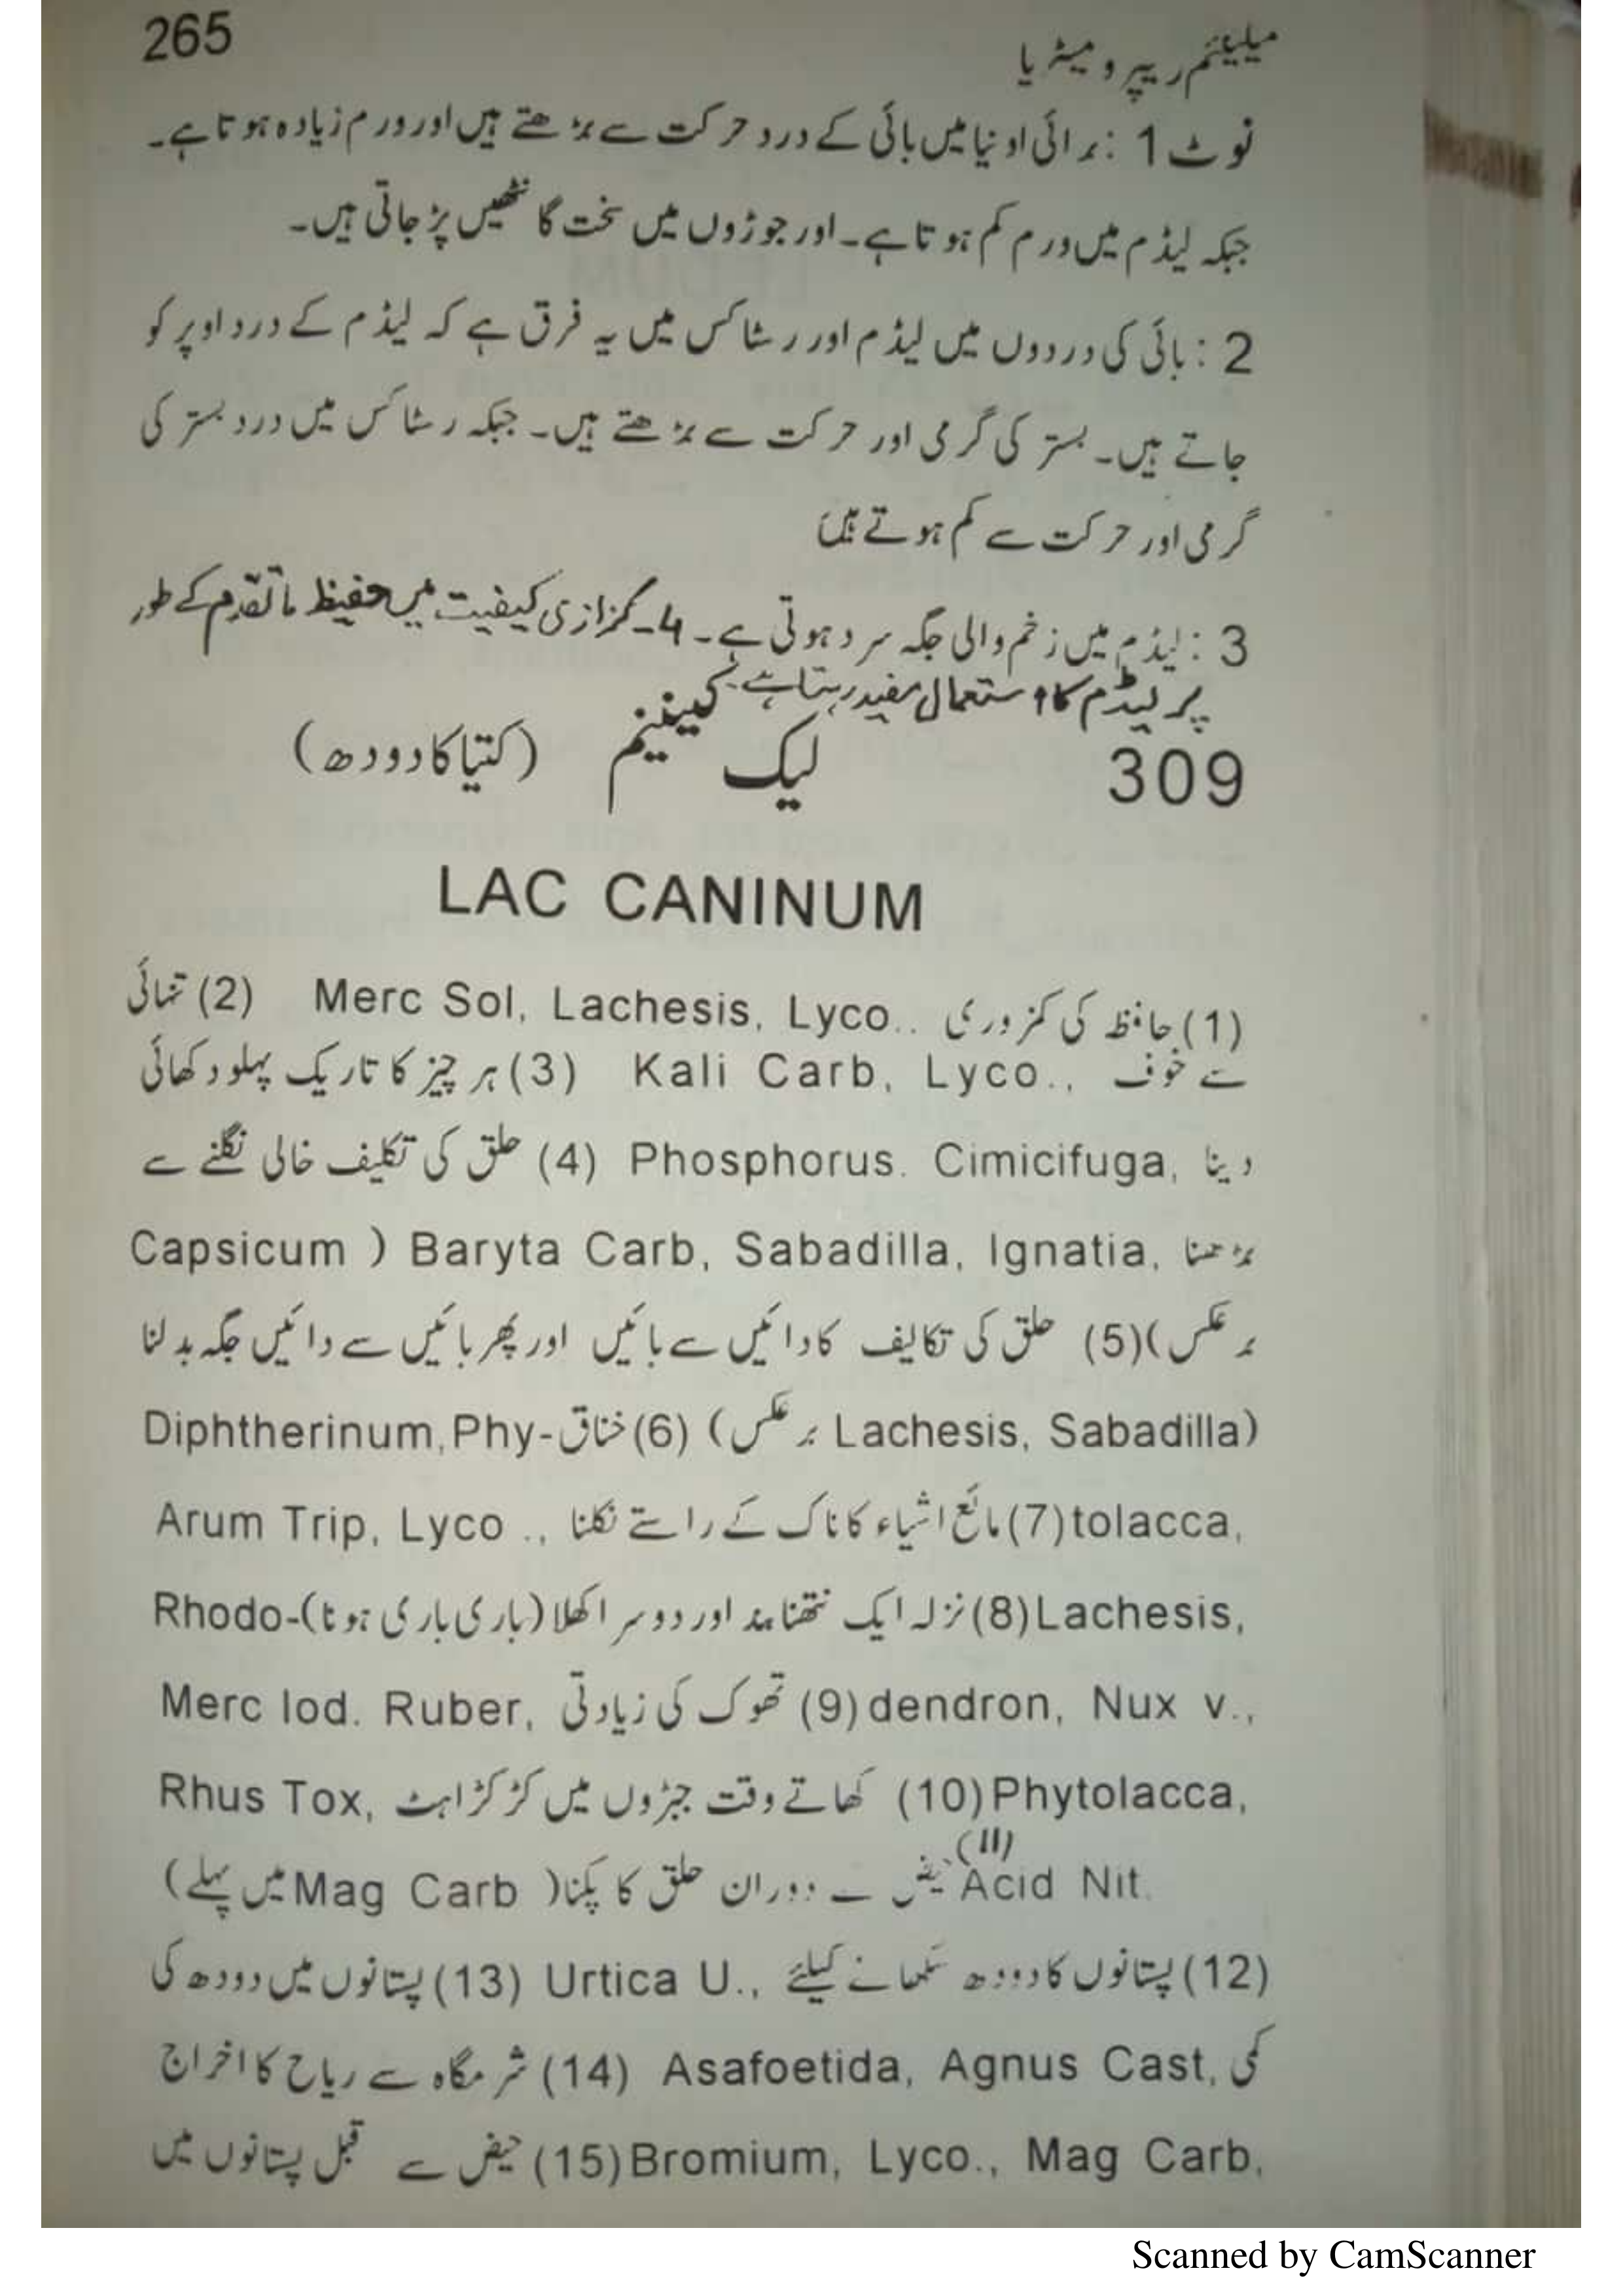 265
میلینئم ریپرو میٹریا
نوٹ 1 : برائی اونیا میں بائی کے درد حرکت سے بڑھتے ہیں اور ورم زیادہ ہوتا ہے۔
جبکہ لیڈم میں ورم کم ہوتا ہے۔ اور جوڑوں میں سخت گانٹھیں پڑ جاتی ہیں۔
2 : بائی کی دردوں میں لیڈم اور رسٹاکس میں یہ فرق ہے کہ لیڈم کے درد اوپر کو
جاتے ہیں۔ بستر کی گرمی اور حرکت سے بڑھتے ہیں۔ جبکہ رسٹاکس میں درد بستر کی
گرمی اور حرکت سے کم ہوتے ہیں
3 : لیڈم میں زخم والی جگہ سرد ہوتی ہے۔ 4۔ کزازی کیفیت میں حفیظ ماتقدم کے طور
پر لیڈم کا استعمال مفید رہتا ہے۔
309 لیک کینینم (کتیا کا دودھ)
LAC CANINUM
(1) حافظ کی کمزوری Merc Sol, Lachesis, Lyco.. (2) تنہائی
سے خوف Kali Carb, Lyco., (3) ہر چیز کا تاریک پہلو دکھائی
دینا Phosphorus. Cimicifuga, (4) حلق کی تکلیف خالی نگلنے سے
بڑھنا Baryta Carb, Sabadilla, Ignatia, ( Capsicum
برعکس) (5) حلق کی تکالیف کا دائیں سے بائیں اور پھر بائیں سے دائیں جگہ بدلنا
(Lachesis, Sabadilla برعکس) (6) خناق Diphtherinum, Phy-
tolacca, (7) مائع اشیاء کا ناک کے راستے نکلنا Arum Trip, Lyco .,
Lachesis, (8) نزلہ ایک نتھنا بند اور دوسرا کھلا (باری باری ہونا) Rhodo-
dendron, Nux v., (9) تھوک کی زیادتی Merc Iod. Ruber,
Phytolacca, (10) کھاتے وقت جبڑوں میں کڑکڑاہٹ Rhus Tox,
Acid Nit. (11) حیض کے دوران حلق کا پکنا (Mag Carb میں پہلے)
(12) پستانوں کا دودھ سکھانے کیلئے Urtica U., (13) پستانوں میں دودھ کی
کمی Asafoetida, Agnus Cast, (14) شرمگاہ سے ریاح کا اخراج
Bromium, Lyco., Mag Carb, (15) حیض سے قبل پستانوں میں
Scanned by CamScanner